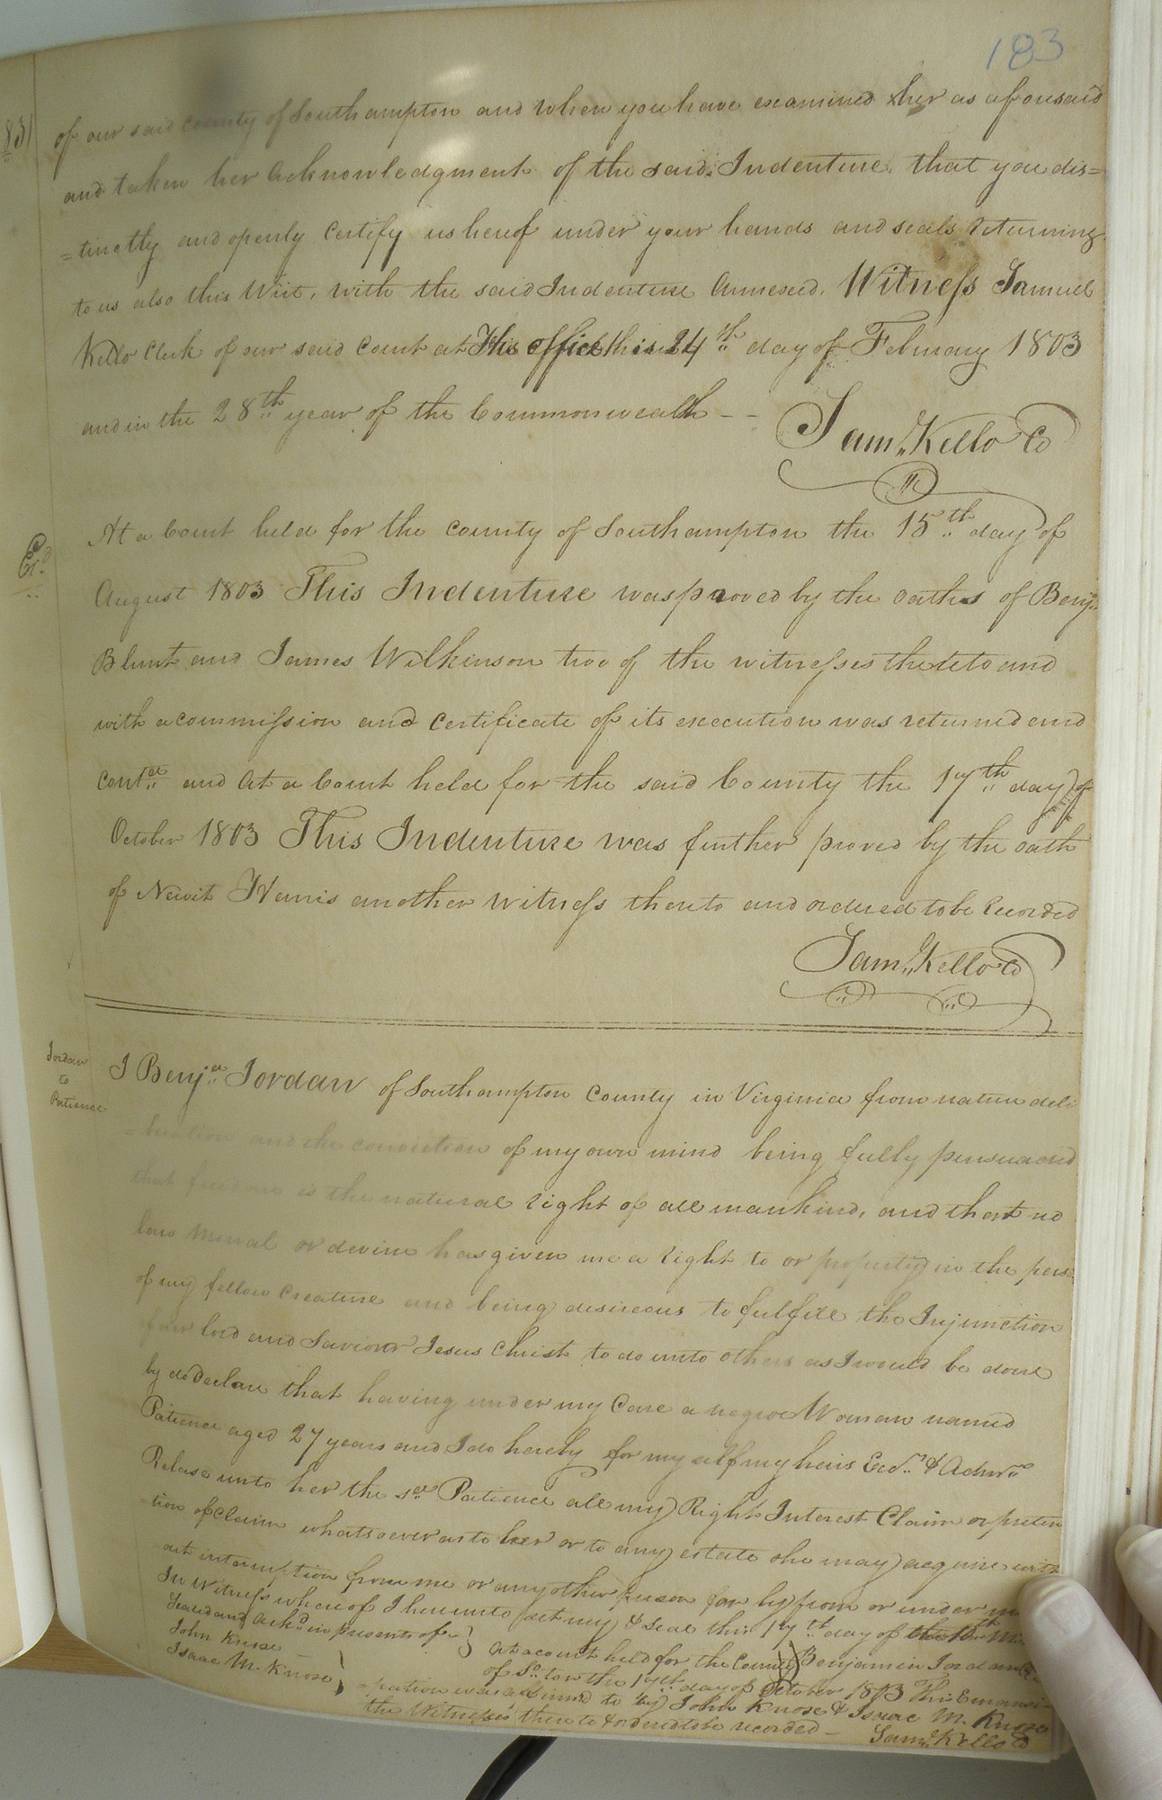 183
831
of our said County of Southampton and when you have examined her as aforesaid
and taken her acknowledgment of the said Indenture that you dis=
=tinctly and openly Certify us hereof under your hands and seals returning
to us also this Writ, with the said Indenture Annexed. Witness Samuel
Kello Clerk of our said Court at His office this 24th day of February 1803
and in the 28th year of the Commonwealth --
Sam. Kello Co
Exd.
At a Court held for the County of Southampton the 15th day of
August 1803 This Indenture was proved by the oaths of Benjn
Blunt and James Wilkinson two of the witnesses thereto and
with a commission and Certificate of its execution was returned and
Contd and at a Court held for the said County the 17th day of
October 1803 This Indenture was further proved by the oath
of Newit Harris another witness thereto and ordered to be Recorded
Saml. Kello Co
Jordan
to
Patience
I Benja Jordan of Southampton County in Virginia from nature deli
=beration and the conviction of my own mind being fully persuaded
that freedom is the natural right of all mankind, and that no
law moral or devine has given me a right to or property in the pers
of my fellow Creature and being desireous to fulfill the Injunction
of our lord and Saviour Jesus Christ to do unto others as I would be done
by do Declare that having under my Care a negroe Woman named
Patience aged 27 years and I do hereby for my self my heirs Exds. & Admrs
Release unto her the sd Patience all my Right Interest Claim or preten
tion of Claim whatsoever as to her or to any estate she may acquire with
out interruption from me or any other person for by from or under me
In Witness whereof I hereunto set my & seal this 17th day of the 10th M
Sealed and Ackd in presents of } Benjamin Jordan
John Knose
Isaac M. Knose
At a court held for the County
of So.ton the 17th day of October 1803 This Emanci
=pation was affirmed to by John Knose & Isaac M. Knose
the Witnesses thereto & ordered to be recorded –
Saml. Kello Co